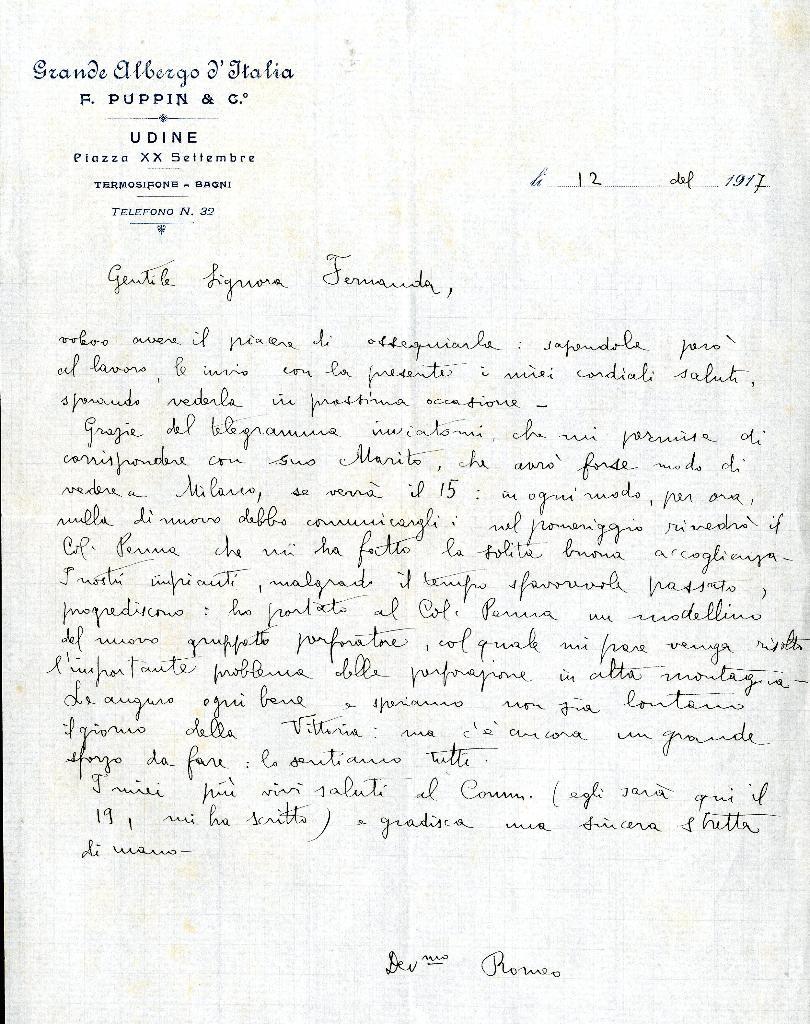 Grande Albergo d'Italia
F. PUPPIN & C.º
UDINE
Piazza XX Settembre
TERMOSIFONE - BAGNI
TELEFONO N. 32
li 12 del 1917
Gentile Signora Fernanda,
volevo avere il piacere di ossequiarla : sapendola però
al lavoro, le invio con la presente i miei cordiali saluti,
sperando vederla in prossima occasione -
Grazie del telegramma inviatomi, che mi permise di
corrispondere con suo Marito, che avrò forse modo di
vedere a Milano, se verrà il 15 : in ogni modo, per ora,
nulla di nuovo debbo comunicargli : nel pomeriggio rivedrò il
Col. Penna che mi ha fatto la solita buona accoglienza -
I nostri impianti, malgrado il tempo sfavorevole passato,
progrediscono : ho portato al Col. Penna un modellino
del nuovo gruppetto perforatore, col quale mi pare venga risolto
l'importante problema della perforazione in alta montagna -
Le auguro ogni bene e speriamo non sia lontano
il giorno della Vittoria : ma c'è ancora un grande
sforzo da fare : lo sentiamo tutti.
I miei più vivi saluti al Comm. (egli sarà qui il
19, mi ha scritto) e gradisca una sincera stretta
di mano -
Dev.mo Romeo